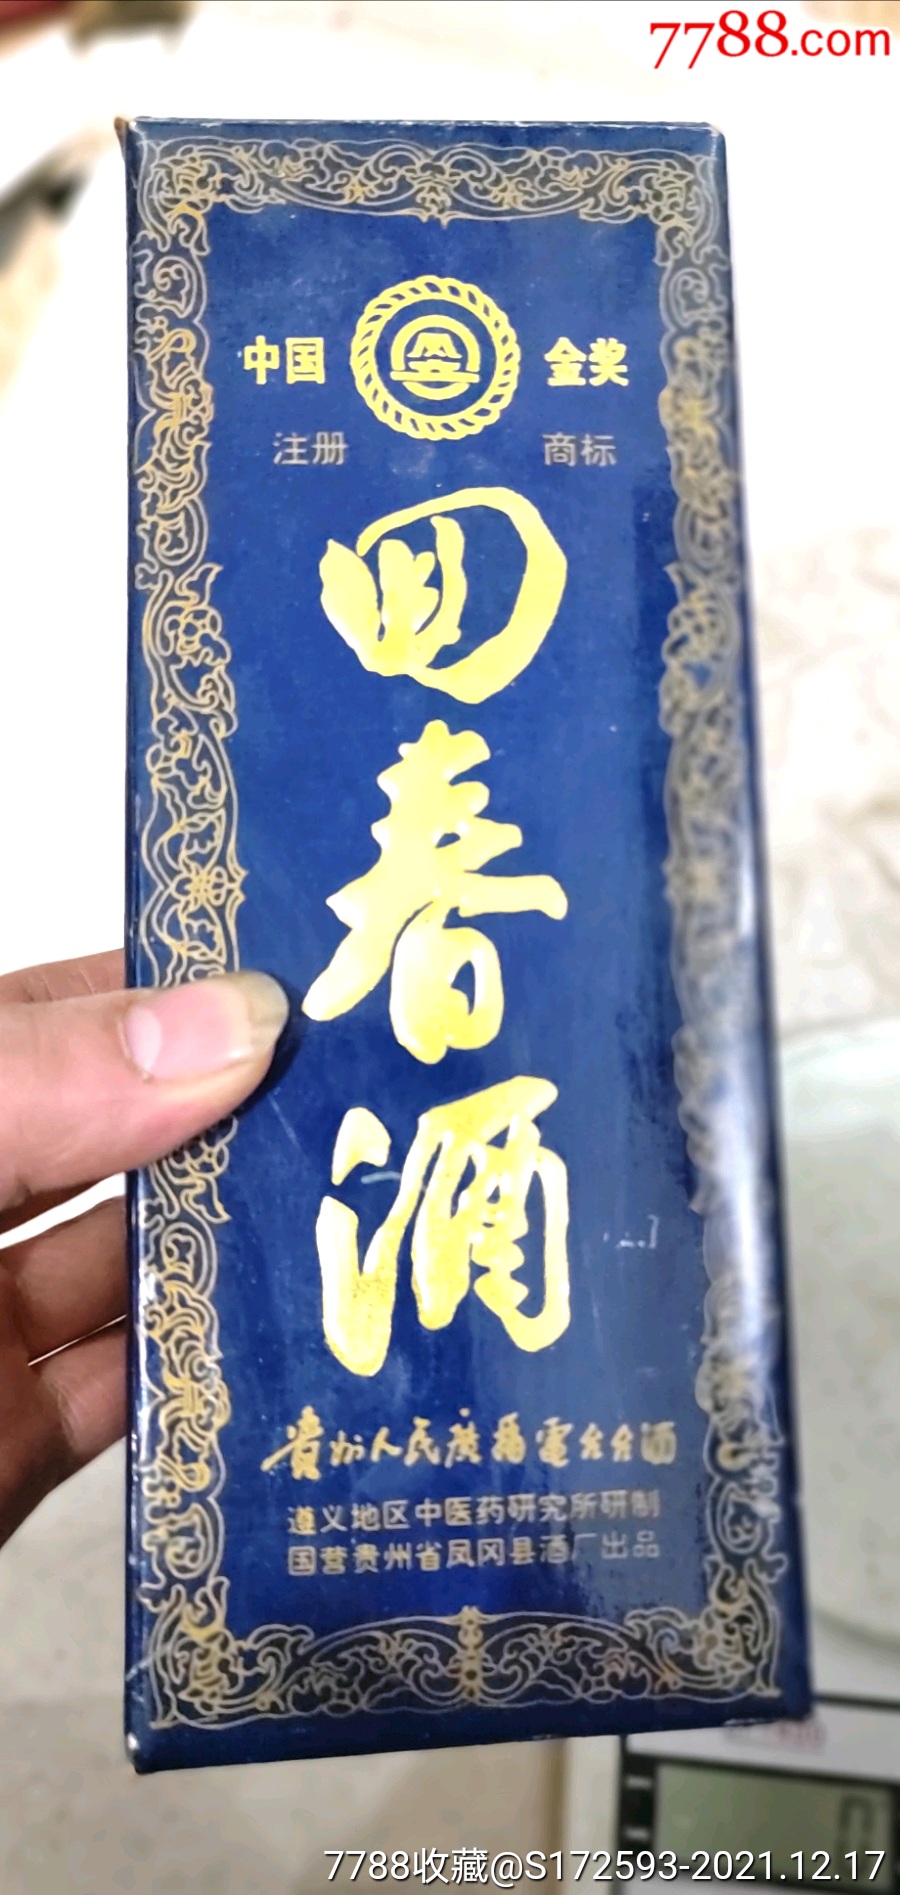 7788.com
中国 金奖
注册 商标
回春酒
贵州人民广播電台台酒
遵义地区中医药研究所研制
国营贵州省凤冈县酒厂出品
7788收藏@S172593-2021.12.17